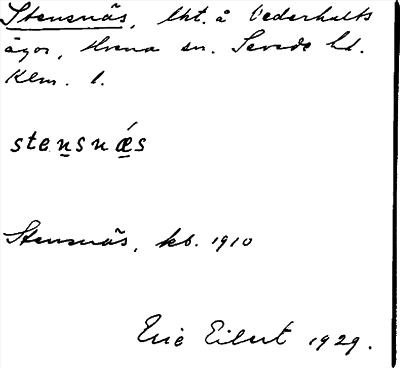 Stensnäs, lht. å Vederhults
ägor, Hvena sn. Sevede hd.
Klm. l.
stensnǽs
Stensnäs, kb. 1910
Eric Eilert 1929.